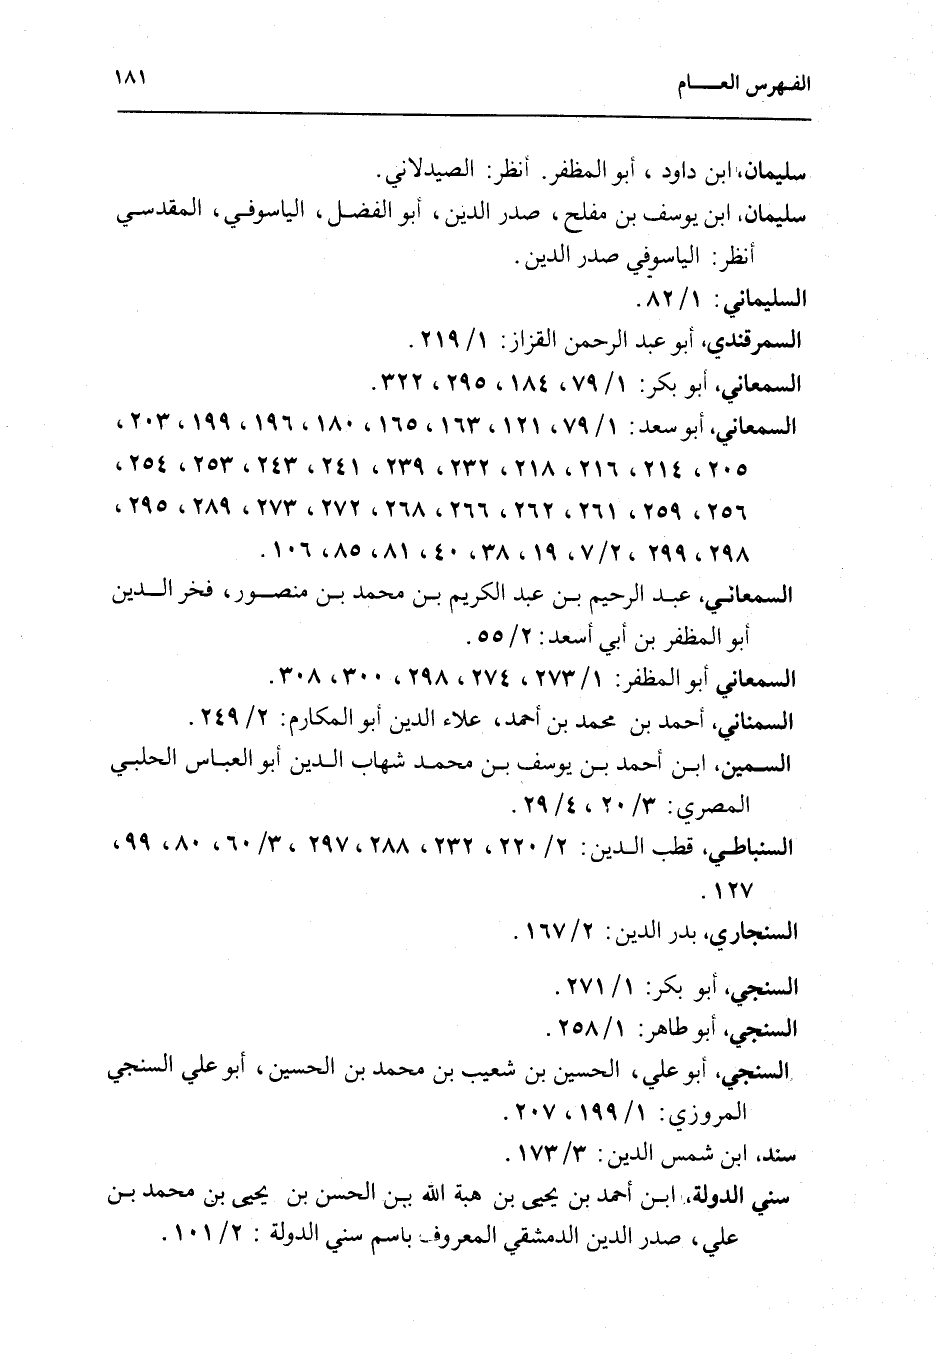 الفهرس العـــام ١٨١
سليمان، ابن داود ، أبو المظفر. أنظر: الصيدلاني.
سليمان، ابن يوسف بن مفلح، صدر الدين، أبو الفضل، الياسوفي، المقدسي
أنظر: الياسوفي صدر الدين.
السليماني: ١/ ٨٢.
السمرقندي، أبو عبد الرحمن القزاز: ١/ ٢١٩.
السمعاني، أبو بكر: ١/ ٧٩، ١٨٤، ٢٩٥، ٣٢٢.
السمعاني، أبو سعد: ١/ ٧٩، ١٢١، ١٦٣، ١٦٥، ١٨٠، ١٩٦، ١٩٩، ٢٠٣،
٢٠٥، ٢١٤، ٢١٦، ٢١٨، ٢٣٢، ٢٣٩، ٢٤١، ٢٤٣، ٢٥٣، ٢٥٤،
٢٥٦، ٢٥٩، ٢٦١، ٢٦٢، ٢٦٦، ٢٦٨، ٢٧٢، ٢٧٣، ٢٨٩، ٢٩٥،
٢٩٨، ٢٩٩، ٧/٢، ١٩، ٣٨، ٤٠، ٨١، ٨٥، ١٠٦.
السمعاني، عبد الرحيم بن عبد الكريم بن محمد بن منصور، فخر الدين
أبو المظفر بن أبي أسعد: ٢/ ٥٥.
السمعاني أبو المظفر: ١/ ٢٧٣، ٢٧٤، ٢٩٨، ٣٠٠، ٣٠٨.
السمناني، أحمد بن محمد بن أحمد، علاء الدين أبو المكارم: ٢/ ٢٤٩.
السمين، ابن أحمد بن يوسف بن محمد شهاب الدين أبو العباس الحلبي
المصري: ٣/ ٢٠، ٤/ ٢٩.
السنباطي، قطب الدين: ٢/ ٢٢٠، ٢٣٢، ٢٨٨، ٢٩٧، ٣/ ٦٠، ٨٠، ٩٩،
١٢٧.
السنجاري، بدر الدين: ٢/ ١٦٧.
السنجي، أبو بكر: ١/ ٢٧١.
السنجي، أبو طاهر: ١/ ٢٥٨.
السنجي، أبو علي، الحسين بن شعيب بن محمد بن الحسين، أبو علي السنجي
المروزي: ١/ ١٩٩، ٢٠٧.
سند، ابن شمس الدين: ٣/ ١٧٣.
سني الدولة، ابن أحمد بن يحيى بن هبة الله بن الحسن بن يحيى بن محمد بن
علي، صدر الدين الدمشقي المعروف باسم سني الدولة : ٢/ ١٠١.